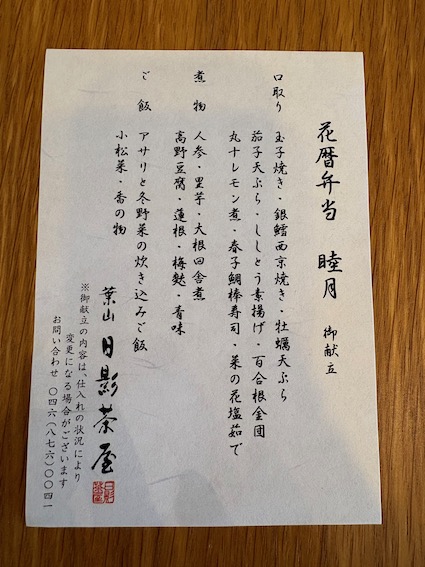 花暦弁当 睦月 御献立
口取り 玉子焼き・銀鱈西京焼き・牡蠣天ぷら
茄子天ぷら・ししとう素揚げ・百合根金団
丸十レモン煮・春子鯛棒寿司・菜の花塩茹で
煮物 人参・里芋・大根田舎煮
高野豆腐・蓮根・梅麩・青味
ご飯 アサリと冬野菜の炊き込みご飯
小松菜・香の物
葉山 日影茶屋
※御献立の内容は、仕入れの状況により
変更になる場合がございます
お問い合わせ 〇四六(八七六)〇〇四一